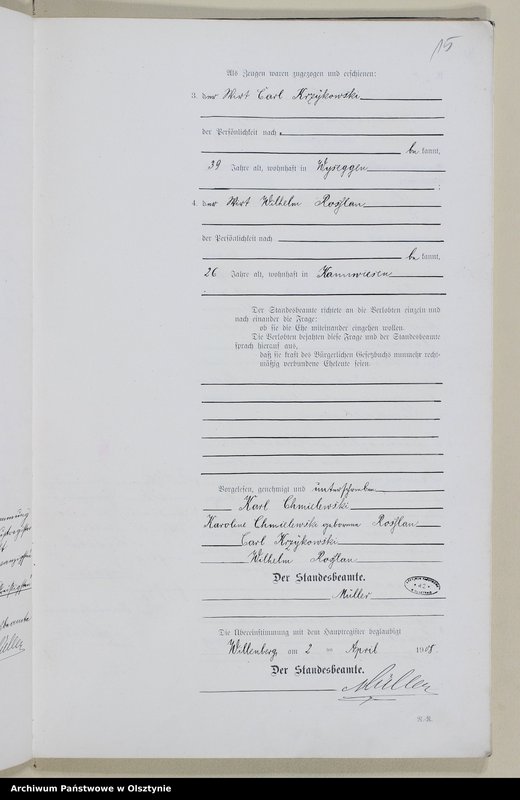 15
Als Zeugen waren zugezogen und erschienen:
3. der Wirt Carl Krzykowski
der Persönlichkeit nach
be kannt,
39 Jahre alt, wohnhaft in Wyseggen
4. der Wirt Wilhelm Roſtlan
der Persönlichkeit nach
be kannt,
26 Jahre alt, wohnhaft in Kannwiesen
Der Standesbeamte richtete an die Verlobten einzeln und
nach einander die Frage:
ob sie die Ehe miteinander eingehen wollen.
Die Verlobten bejahten diese Frage und der Standesbeamte
sprach hierauf aus,
daß sie kraft des Bürgerlichen Gesetzbuchs nunmehr recht-
mäßig verbundene Eheleute seien.
Vorgelesen, genehmigt und unterschrieben
Karl Chmielewski
Karoline Chmielewski geborene Roſtlan
Carl Krzykowski
Wilhelm Roſtlan
Der Standesbeamte.
Müller
Die Übereinstimmung mit dem Hauptregister beglaubigt
Willenberg, am 2 ten April 1908.
Der Standesbeamte.
Müller
R.-R.
Archiwum Państwowe w Olsztynie